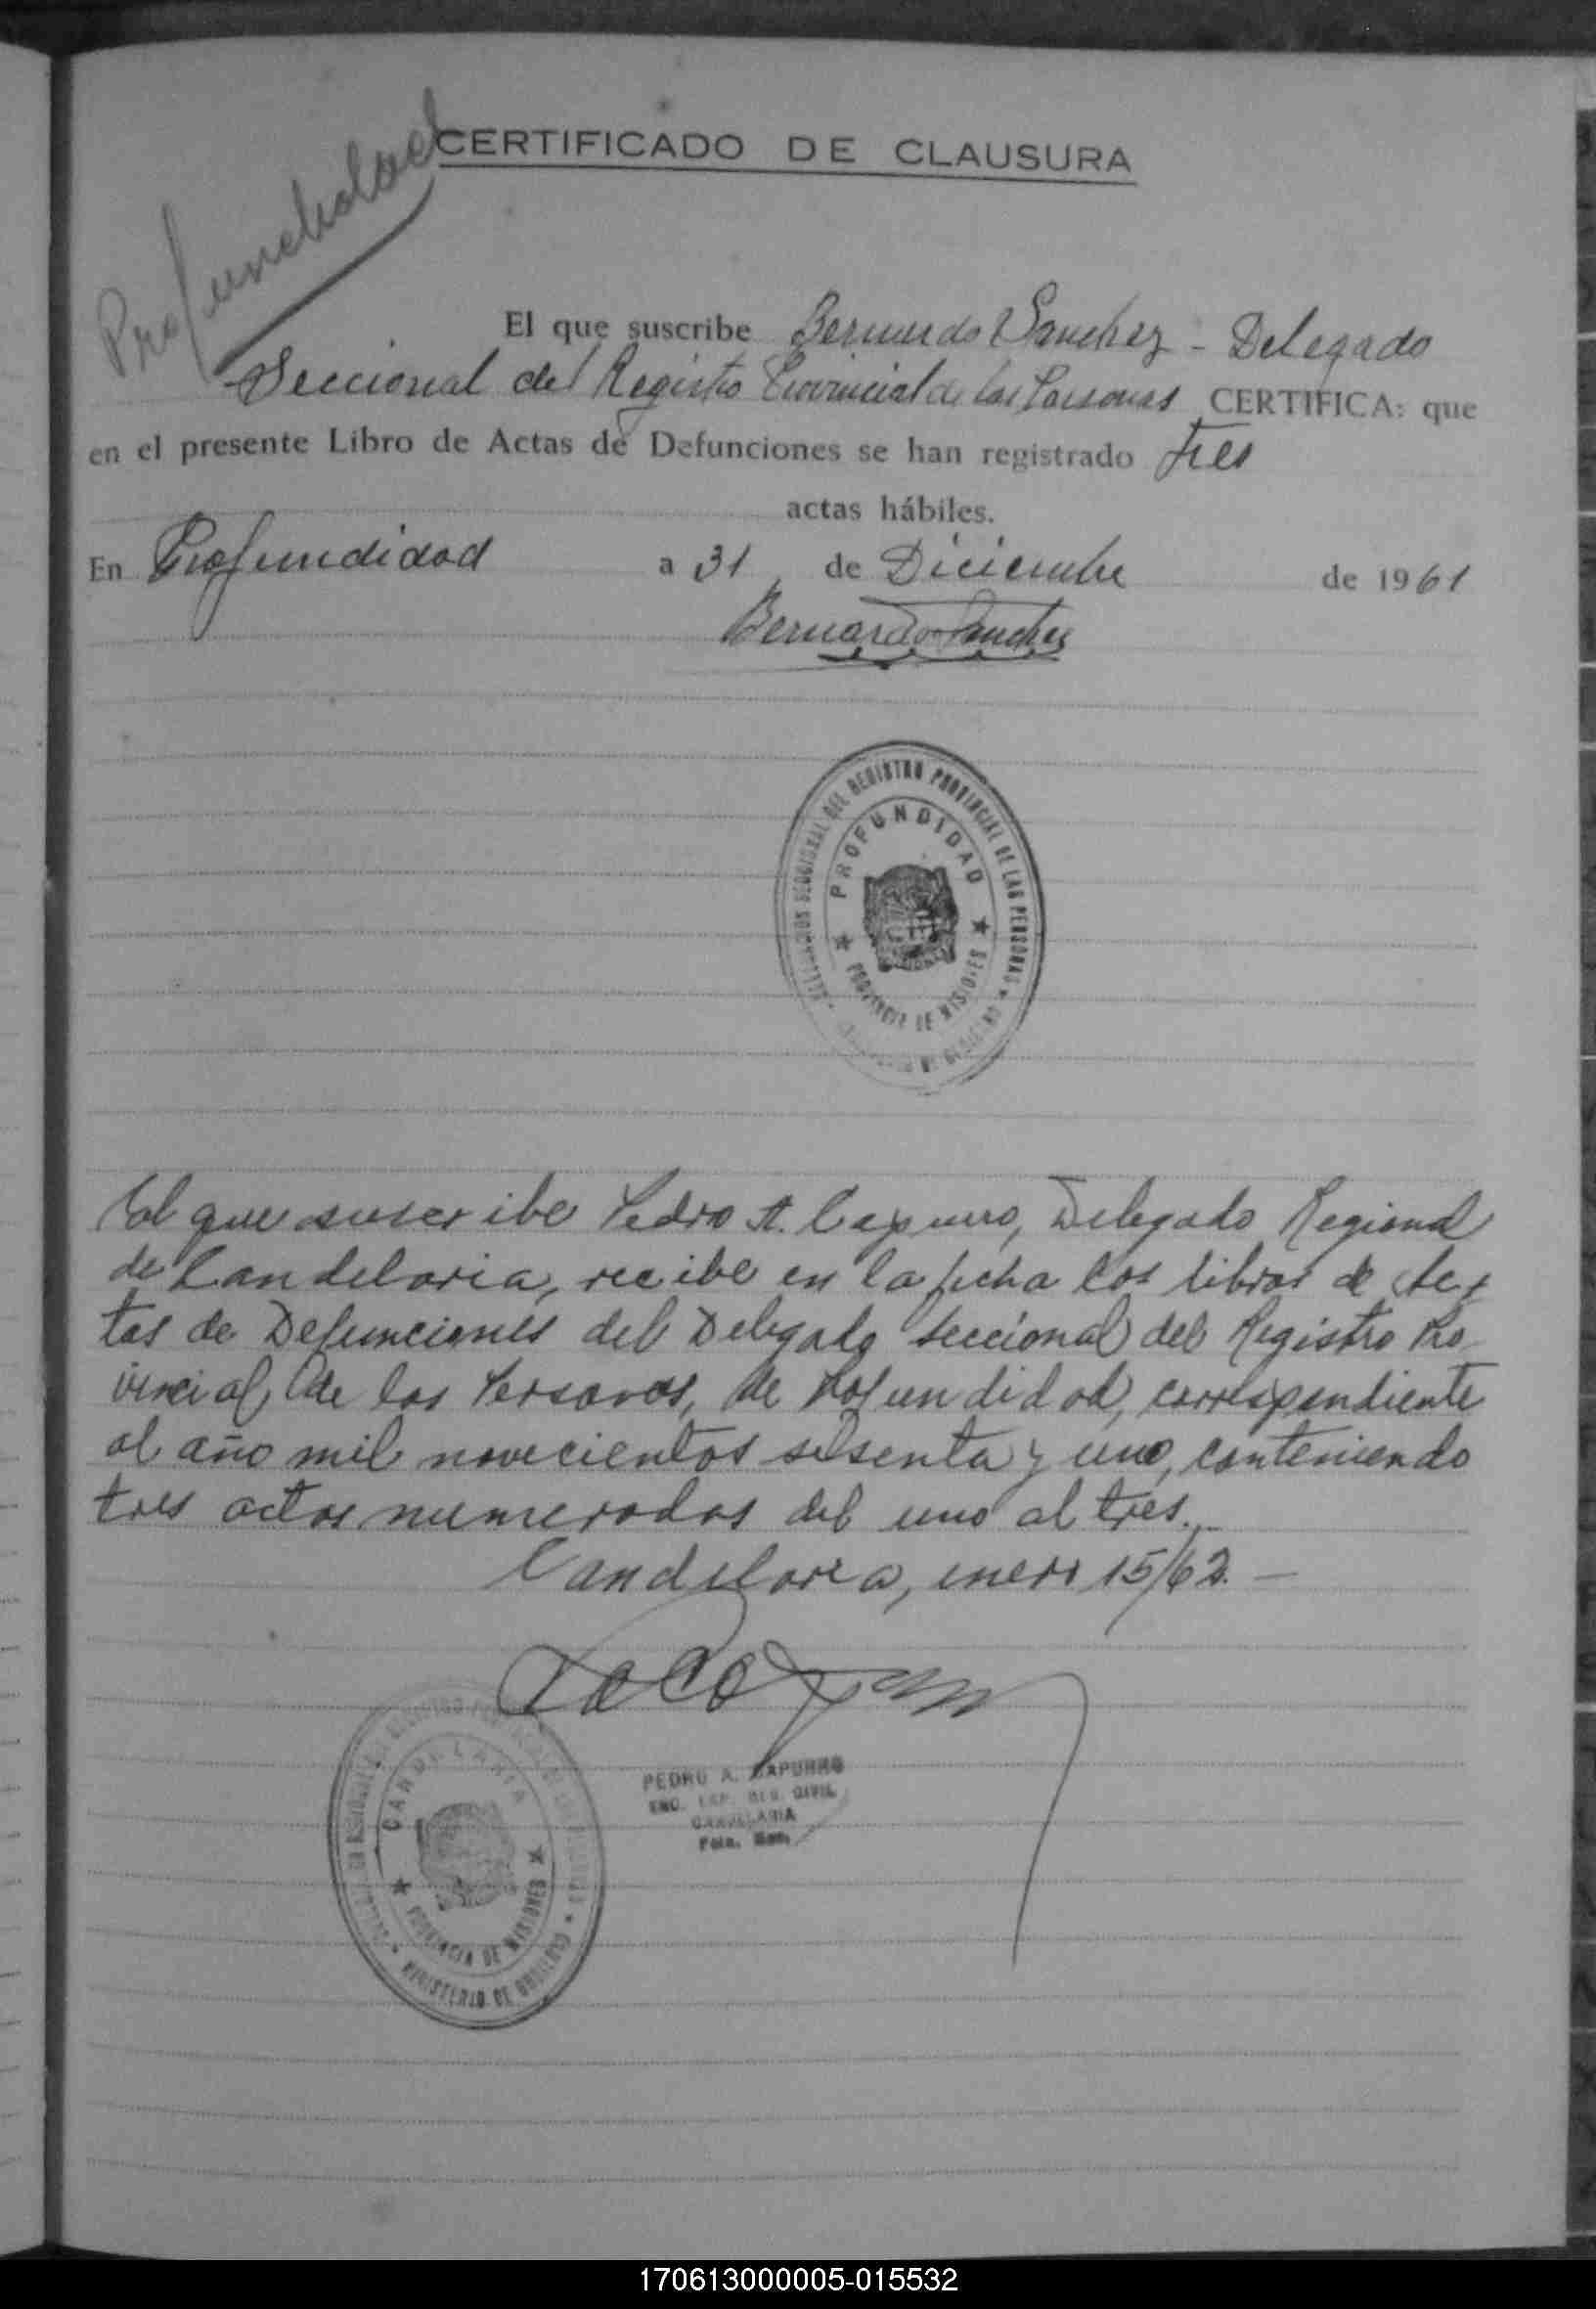 CERTIFICADO DE CLAUSURA
Profundidad
El que suscribe Bernardo Sanchez - Delegado
Seccional del Registro Provincial de las Personas CERTIFICA: que
en el presente Libro de Actas de Defunciones se han registrado tres
actas hábiles.
En Profundidad a 31 de Diciembre de 1961
Bernardo Sanchez
DELEGACION SECCIONAL DEL REGISTRO PROVINCIAL DE LAS PERSONAS
PROFUNDIDAD
PROVINCIA DE MISIONES
El que suscribe Pedro A. Capurro, Delegado Regional
de Candelaria, recibe en la fecha los libros de Ac-
tas de Defunciones del Delegado Seccional del Registro Pro
vincial de las Personas, de Profundidad, correspondiente
al año mil novecientos sesenta y uno, conteniendo
tres actas numeradas del uno al tres.
Candelaria, enero 15/62. —
CANDELARIA
PROVINCIA DE MISIONES
MINISTERIO DE GOBIERNO
PEDRO A. CAPURRO
CIVIL
CANDELARIA
170613000005-015532